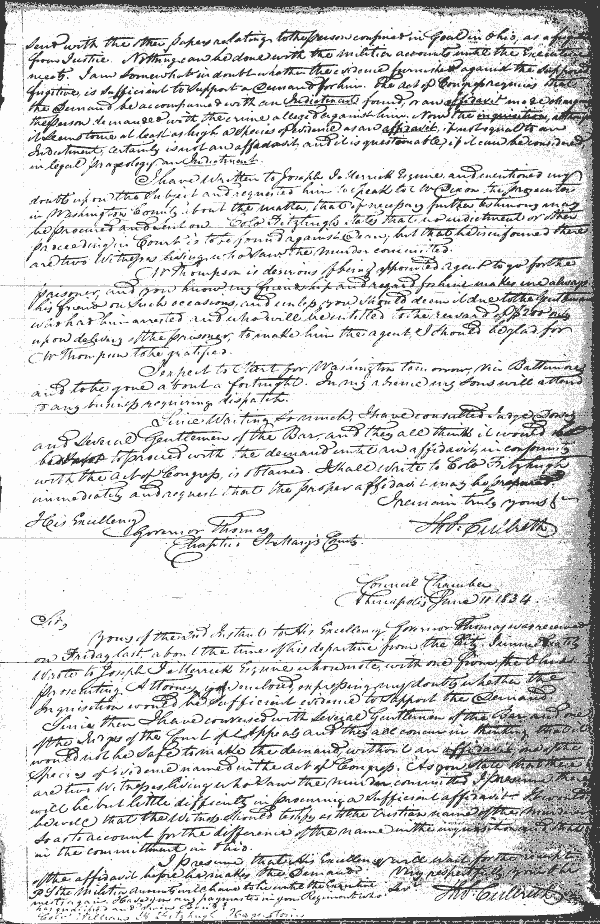 Sent with the other papers relating to the person confined in Goal in Ohio, as a fugitive
from Justice. Nothing can be done with the militia accounts until the Executive
meets. I am somewhat in doubt whether the evidence furnished against the supposed
fugitive is sufficient to support a demand for him. The Act of Congress requires that
the demand be accompanied with an Indictment found, or an affidavit made charging
the person demanded with the crime alleged against him. Now the inquisition, although
it seems to me at least as high a species of evidence as an affidavit, if not equal to an
Indictment, certainly is not an affidavit, and it is questionable if it can be considered
in legal phrazeology an Indictment.
I have written to Joseph I. Merrick Esquire and mentioned my
doubt upon the subject and requested him to speak to Mr Dixon the prosecutor
in Washington County about the matter, that if necessary further testimony may
be procured and sent on. Colo Fitzhugh states that no indictment or other
proceeding in Court is to be found against, but that he is informed there
are two Witnesses living who saw the murder committed.
Mr Thompson is desirous of being appointed agent to go for the
prisoner, and you know my friendship and regard for him makes me always
his friend on such occasions, and unless you should deem it due to the gentleman
who had him arrested and who will be entitled to the reward of $200 only
upon delivery of the prisoner, to make him the agent, I should be glad for
Mr Thompson to be gratified.
I expect to start for Washington tomorrow, via Baltimore
and to be gone about a fortnight. In my absence my sons will attend
to any business requiring dispatch.
Since writing so much, I have consulted Judge
and several Gentlemen of the Bar, and they all think it would not
be to proceed with the demand until an affidavit, in conformity
with the Act of Congress, is obtained. I shall write to Colo Fitzhugh
immediately and request that the proper affidavit may be prepared.
I remain truly yours &
His Excellency
Governor Thomas
Chaptico St Mary's County
Thos. Culbreth
Council Chamber
Annapolis June 11 1834.
Sir,
Yours of the 2nd Instant to His Excellency Governor Thomas was received
on Friday last about the time of his departure from the City. I immediately
wrote to Joseph I. Merrick Esquire whose note, with one from the
prosecuting Attorney, you enclosed expressing my doubts whether the
inquisition would be sufficient evidence to support the Demand.
Since then I have conversed with several Gentlemen of the Bar, and one
of the Judges of the Court of Appeals and they all concur in thinking that it
would not be safe to make the demand without an affidavit, one of the
species of evidence named in the Act of Congress. As you state that there
are two Witnesses living who saw the murder committed I presume there
will be but little difficulty in procuring a sufficient affidavit. It would
be well that the Witness should testify as to the Christian name of the murderer
so as to account for the difference of the name in the inquisition and that
in the committment in Ohio.
I presume that His Excellency will wait for the receipt
of the affidavit before he makes the Demand. Very respectfully your
The Militia accounts will have to lie until the Executive
meeting in. Have you any paymaster in your Regiment who
Thos. Culbreth
Colo. Fitzhugh Hagerstown